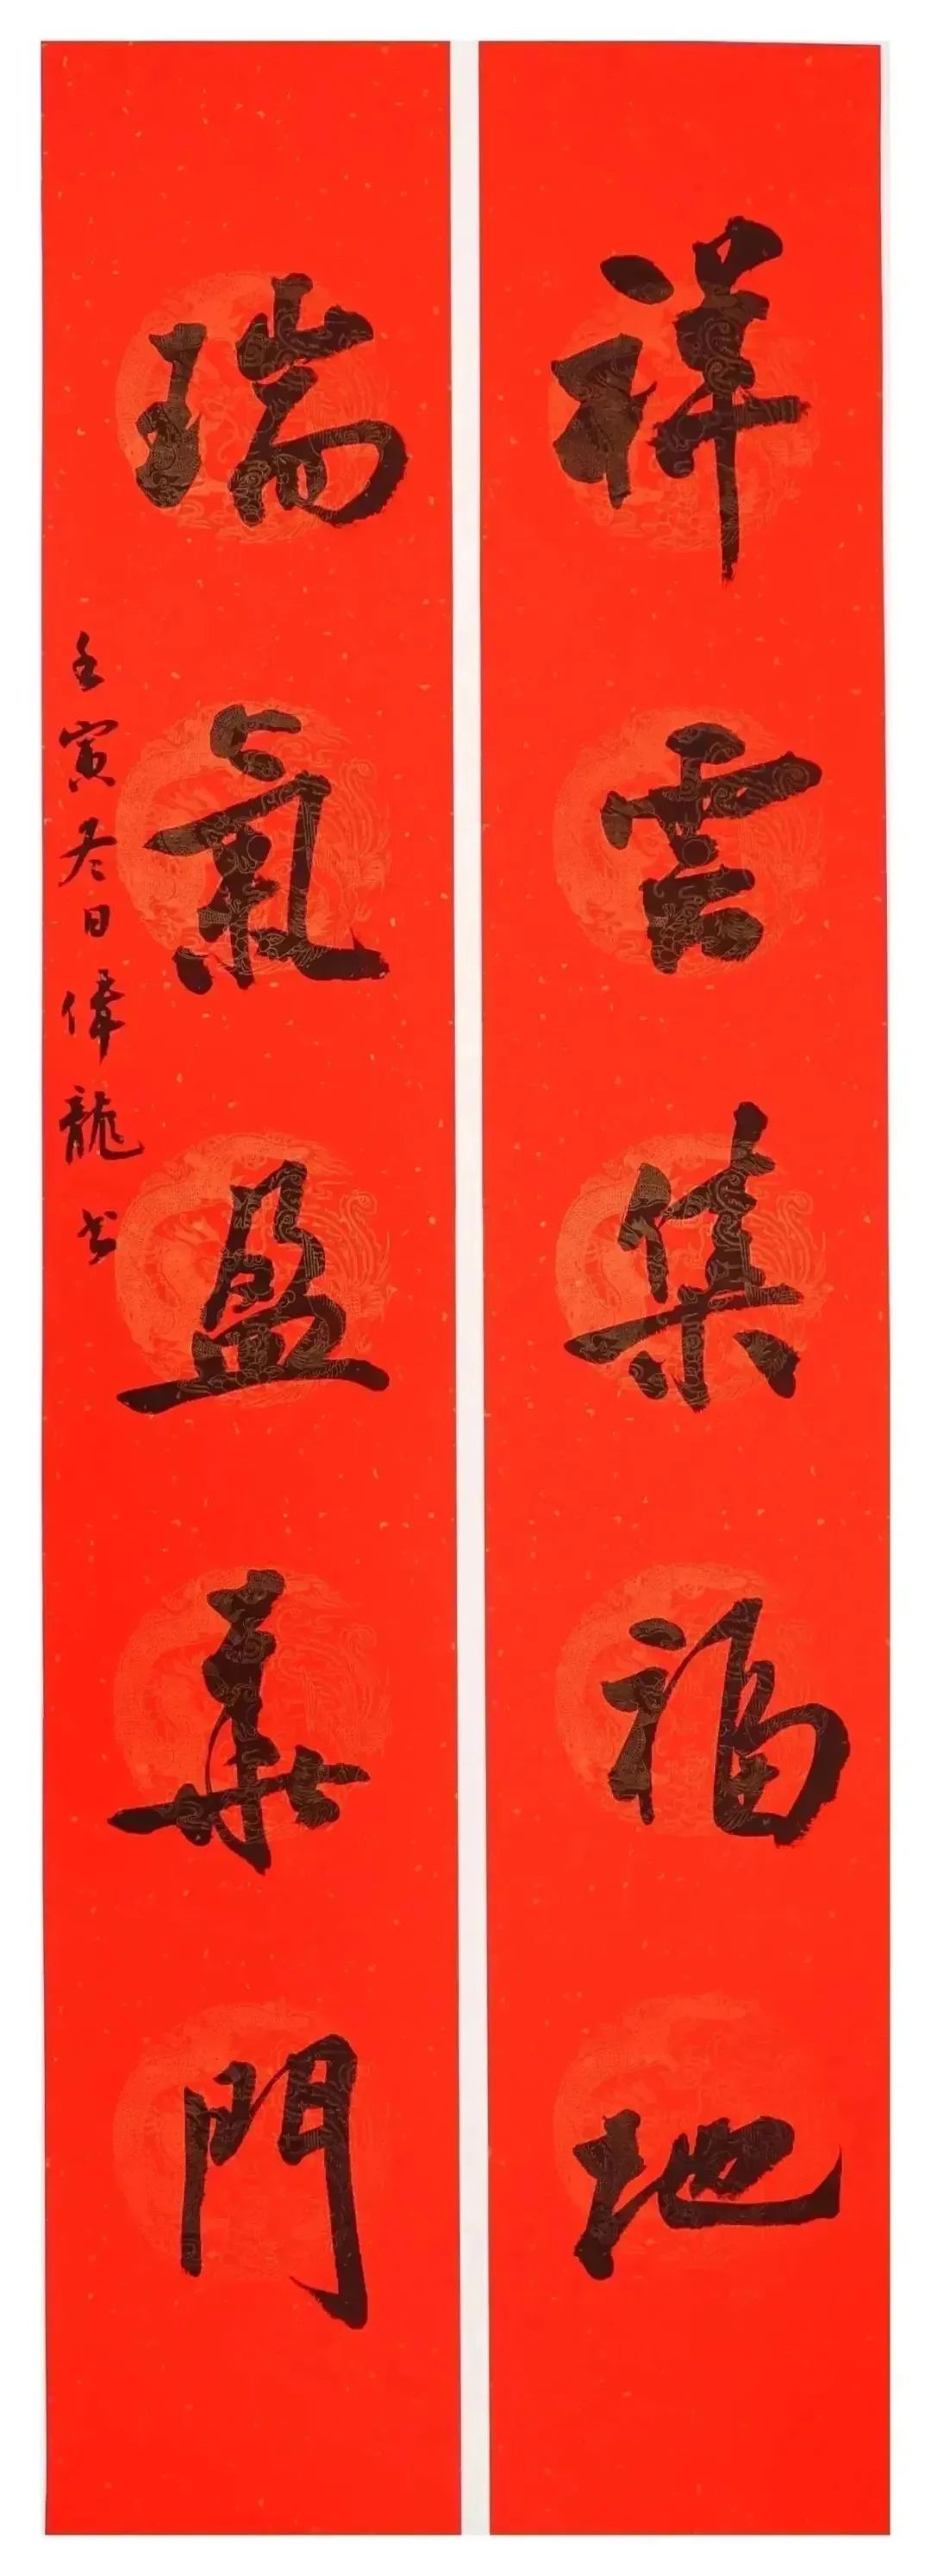 祥雲集福地
瑞氣盈華門
壬寅冬日偉龍书